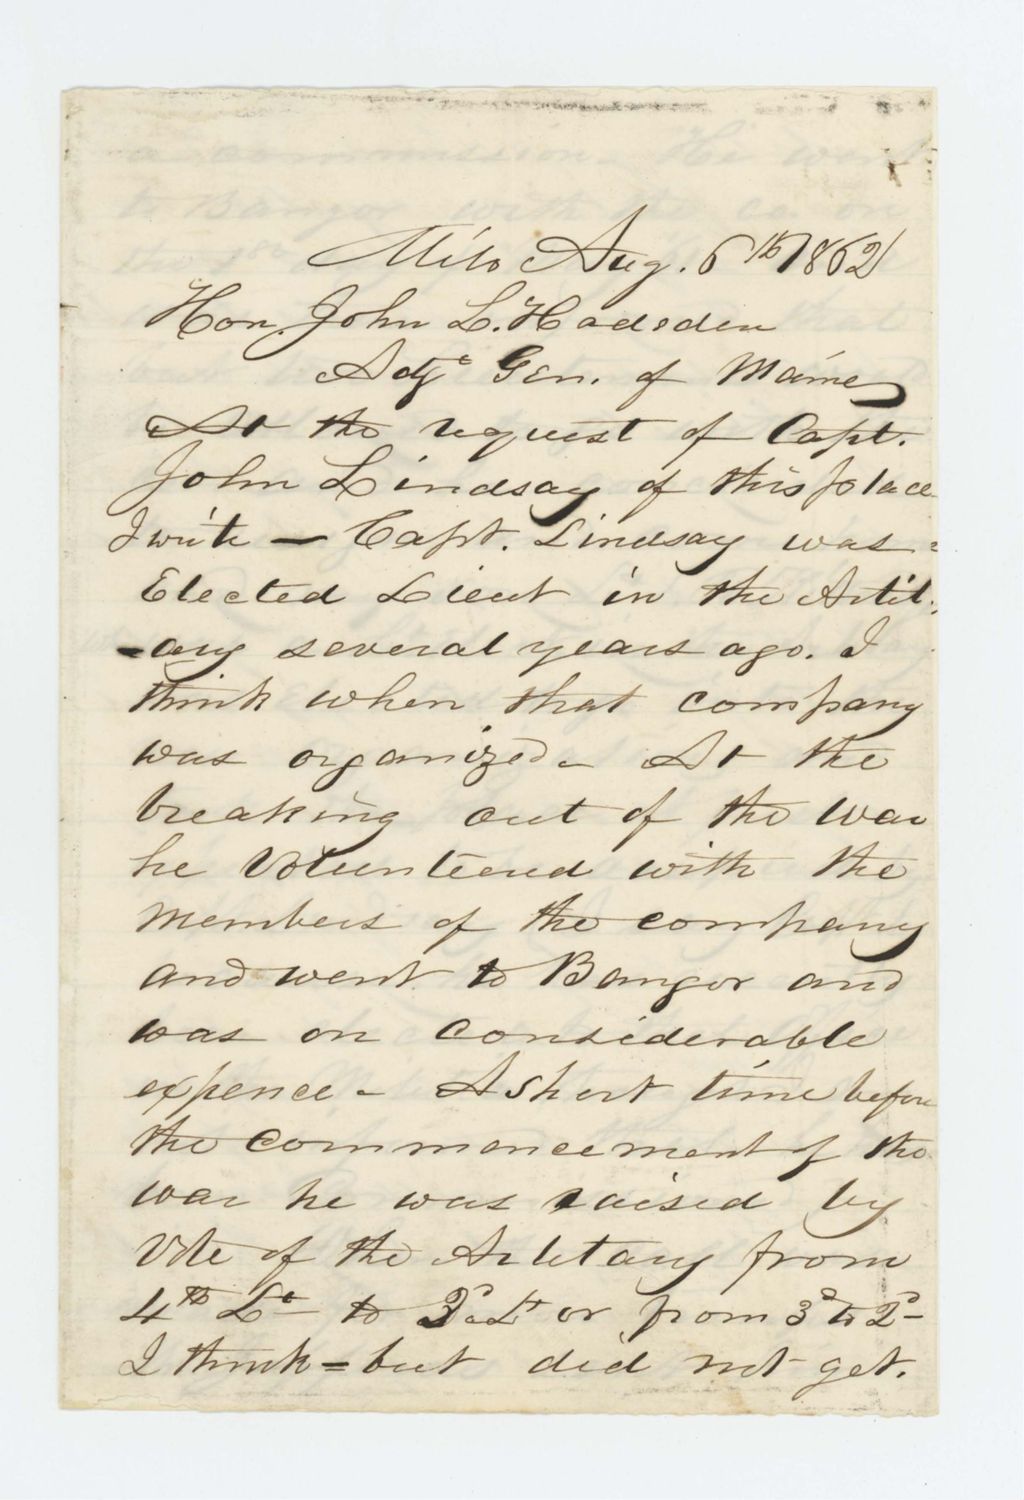 Milo Aug. 6th 1862
Hon. John L. Hodsden
Adjt Gen. of Maine
At the request of Capt.
John Lindsay of this place
I write — Capt. Lindsay was
Elected Lieut in the Artil
-ary several years ago. I
think when that company
was organized - At the
breaking out of the war
he volunteered with the
members of the company
and went to Bangor and
was on considerable
expence - A short time before
the commencement of the
war he was raised by
vote of the Artilary from
4th Lt - to 3d Lt or from 3d to 2d -
I think = but did not get.